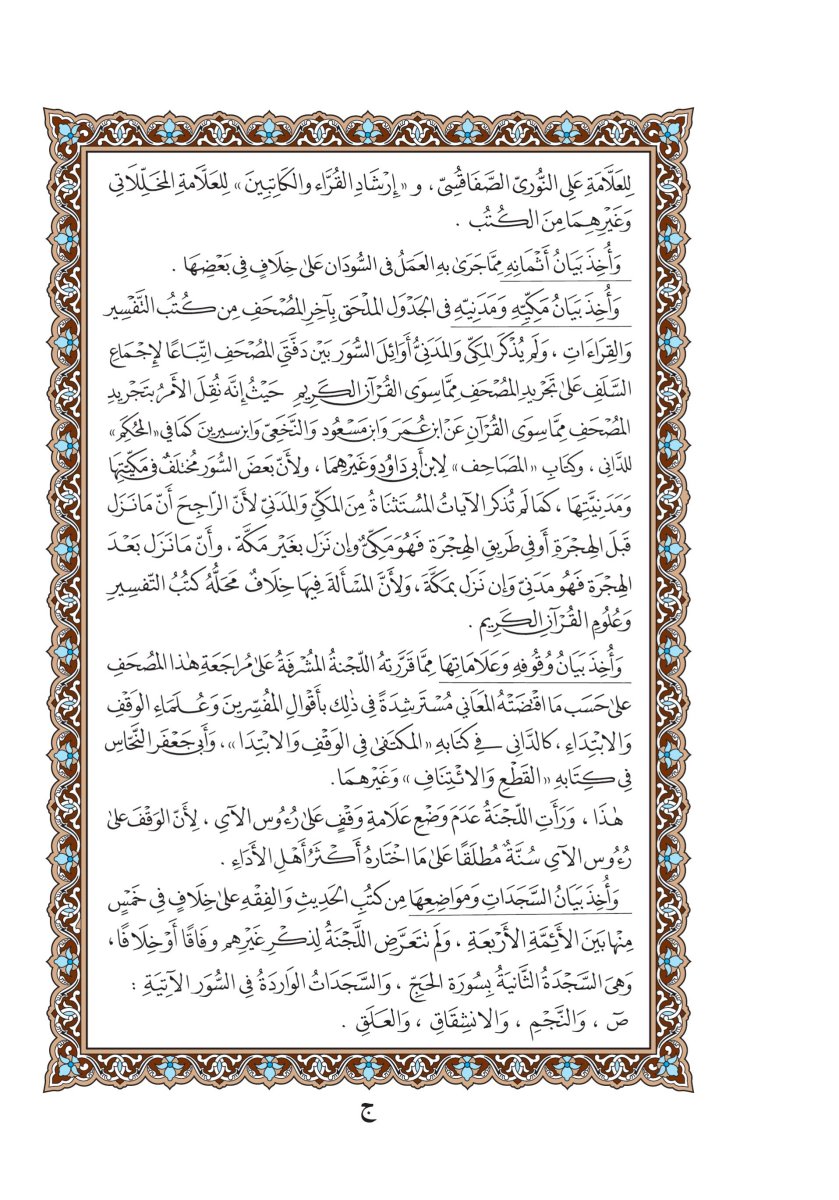 لِلعَلَّامَةِ عَلِى النُّورِىّ الصَّفَاقُسِىّ ، و « إِرْشَادِ القُرَّاء والكَاتِبِينَ » لِلعَلَّامةِ المخَلِّلَاتِى
وَغَيْرِهِمَا مِنَ الكُتُبُ .
وَأُخِذَ بَيَانُ أَثْمَانِهِ مِمَّا جَرَىٰ بهِ العَمَلُ فى السُّودَان عَلىٰ خِلَافٍ فِى بَعْضِهَا .
وَأُخِذَ بَيَانُ مَكِيِّهِ وَمَدَنِيّهِ فى الجَدْوَل الملْحَق بآخِرِ المُصْحَفِ مِن كُتُبُ التَّفْسِير
وَالقِرَاءَاتِ ، وَلَم يُذْكَرِ المَكِّى وَالمَدَنِىُّ أَوَائِلَ السُّوَر بَيْن دَفَّتَىِ المُصْحَفِ اتِّبَاعًا لإِجْمَاع
السَّلَفِ عَلىٰ تَجْرِيْدِ المُصْحَفِ مِمَّا سِوَى القُرْآنِ الكَرِيمِ حَيْثُ إِنَّه نُقِلَ الأَمْرُ بتَجْرِيدِ
المُصْحَفِ مِمَّا سِوَى القُرْآنِ عَنْ ابنِ عُمَرَ وَابنِ مَسْعُود وَالنَّخَعِىّ وَابن سِيرينَ كَمَا فى «المُحْكَم»
للدَّانِى ، وكِتَابِ «المَصَاحِف» لِابنِ أَبى دَاوُد وَغَيْرِهِمَا ، ولأَنّ بَعضَ السُّوَر مُختَلَفٌ فى مَكِّيَّتِهَا
وَمَدَنِيَّتِهَا ، كَمَا لَم تُذكَرِ الآيَاتُ المُسْتَثنَاةُ مِنَ المَكِّىِّ وَالمَدَنِىِّ لأَنّ الرَّاجِحَ أَنّ مَا نَزَل
قَبلَ الهِجْرَةِ أَوفى طَرِيقِ الهِجْرَة فَهُوَ مَكِّىٌّ وَإِن نَزَل بغَيْر مَكَّة ، وَأَنّ مَا نَزَل بَعْدَ
الهِجْرَة فَهُو مَدَنِىّ وَإِن نَزَل بمَكَّةَ ، وَلأَنَّ المَسْأَلَة فِيهَا خِلَافٌ مَحَلُّهُ كُتبُ التّفسِيرِ
وَعُلُومِ القُرْآنِ الكَرِيم .
وَأُخِذَ بَيَانُ وُقُوفهِ وَعَلَامَاتِهَا مِمَّا قَرَّرَتهُ اللّجْنةُ المُشْرِفَةُ عَلىٰ مُراجَعَةِ هٰذا المُصْحَفِ
عَلىٰ حَسَب مَا اقْضَتْهُ المَعَاني مُسْتَرشِدَةً فى ذٰلِك بأَقْوَالِ المُفَسِّرينَ وَعُلَمَاءِ الوَقْفِ
وَالابْتِدَاءِ ، كالدَّانِى فى كتَابهِ «المكتَفىٰ فِى الوَقْفِ وَالابْتِدَا» ، وَأَبى جَعْفَر النَّحَّاس
فِى كِتَابهِ «القَطْعِ وَالائْتِنَافِ» وَغَيْرهِمَا.
هٰذَا ، وَرَأَتِ اللّجْنَةُ عَدَمَ وَضْعِ عَلَامةِ وَقْفٍ عَلىٰ رُءُوس الآىِ ، لِأَنّ الوَقْفَ عَلىٰ
رُءُوس الآىِ سُنَّةٌ مُطلَقًا عَلىٰ مَا اخْتَارهُ أَكْثَرُ أَهْلِ الأَدَاءِ .
وَأُخِذَ بَيَانُ السَّجَدَاتِ وَمَواضِعِهَا مِن كتُبِ الحَدِيثِ وَالفِقْهِ عَلىٰ خِلَافٍ فِى خَمْسٍ
مِنْهَا بَينَ الأَئِمَّةِ الأَرْبَعَةِ ، وَلَم تتَعَرَّضِ اللَّجْنَةُ لِذكْرِ غَيْرِهِم وِفَاقًا أَوْ خِلَافًا،
وَهِىَ السَّجْدَةُ الثَّانِيَةُ بسُورَةِ الحَجِّ ، وَالسَّجَدَاتُ الوَارِدَةُ فِى السُّوَر الآتِيَةِ :
صٓ ، وَالنَّجْمِ ، وَالانشِقَاقِ ، وَالعَلَقِ .
ج